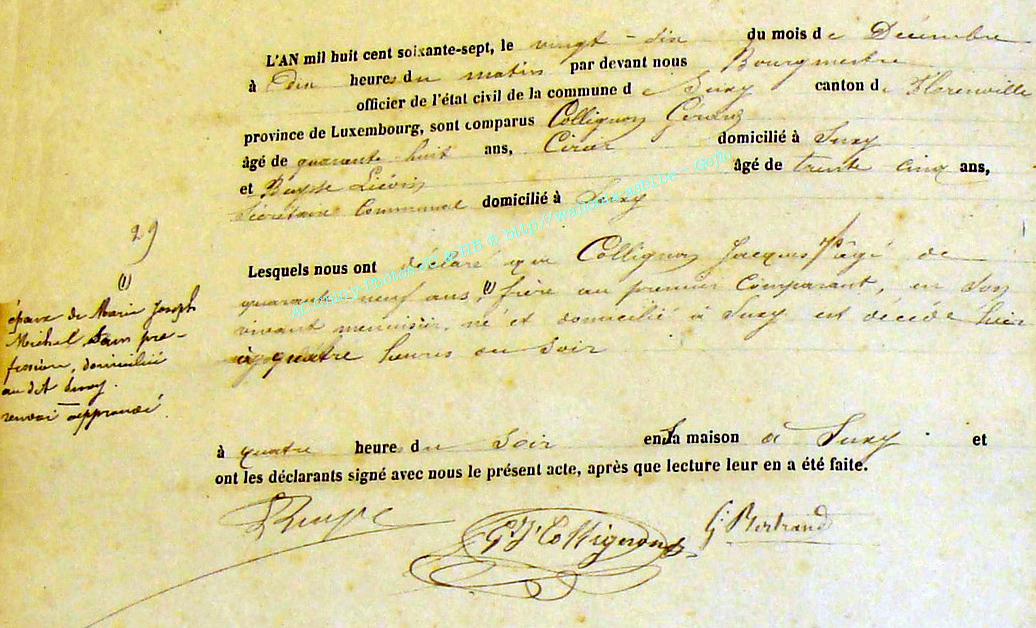 L'AN mil huit cent soixante-sept, le vingt-six du mois de Décembre
à dix heures du matin par devant nous Bourgmestre
officier de l'état civil de la commune de Suxy canton de Florenville
province de Luxembourg, sont comparus Collignon Gérard
âgé de quarante huit ans, domicilié à Suxy
et âgé de trente cinq ans,
Secrétaire Communal domicilié à Suxy
29
Lesquels nous ont déclaré que Collignon Jacques âgé de
quarante neuf ans, (1) frère au premier Comparant, en son
vivant menuisier, né et domicilié à Suxy est décédé hier
à quatre heures du Soir
(1)
époux de Marie Joseph
Michel, Sans pro-
fession, domiciliée
au dit Suxy.
renvoi approuvé.
à quatre heures du Soir en sa maison à Suxy. et
ont les déclarants signé avec nous le présent acte, après que lecture leur en a été faite.
G. J. Collignon G. Bertrand